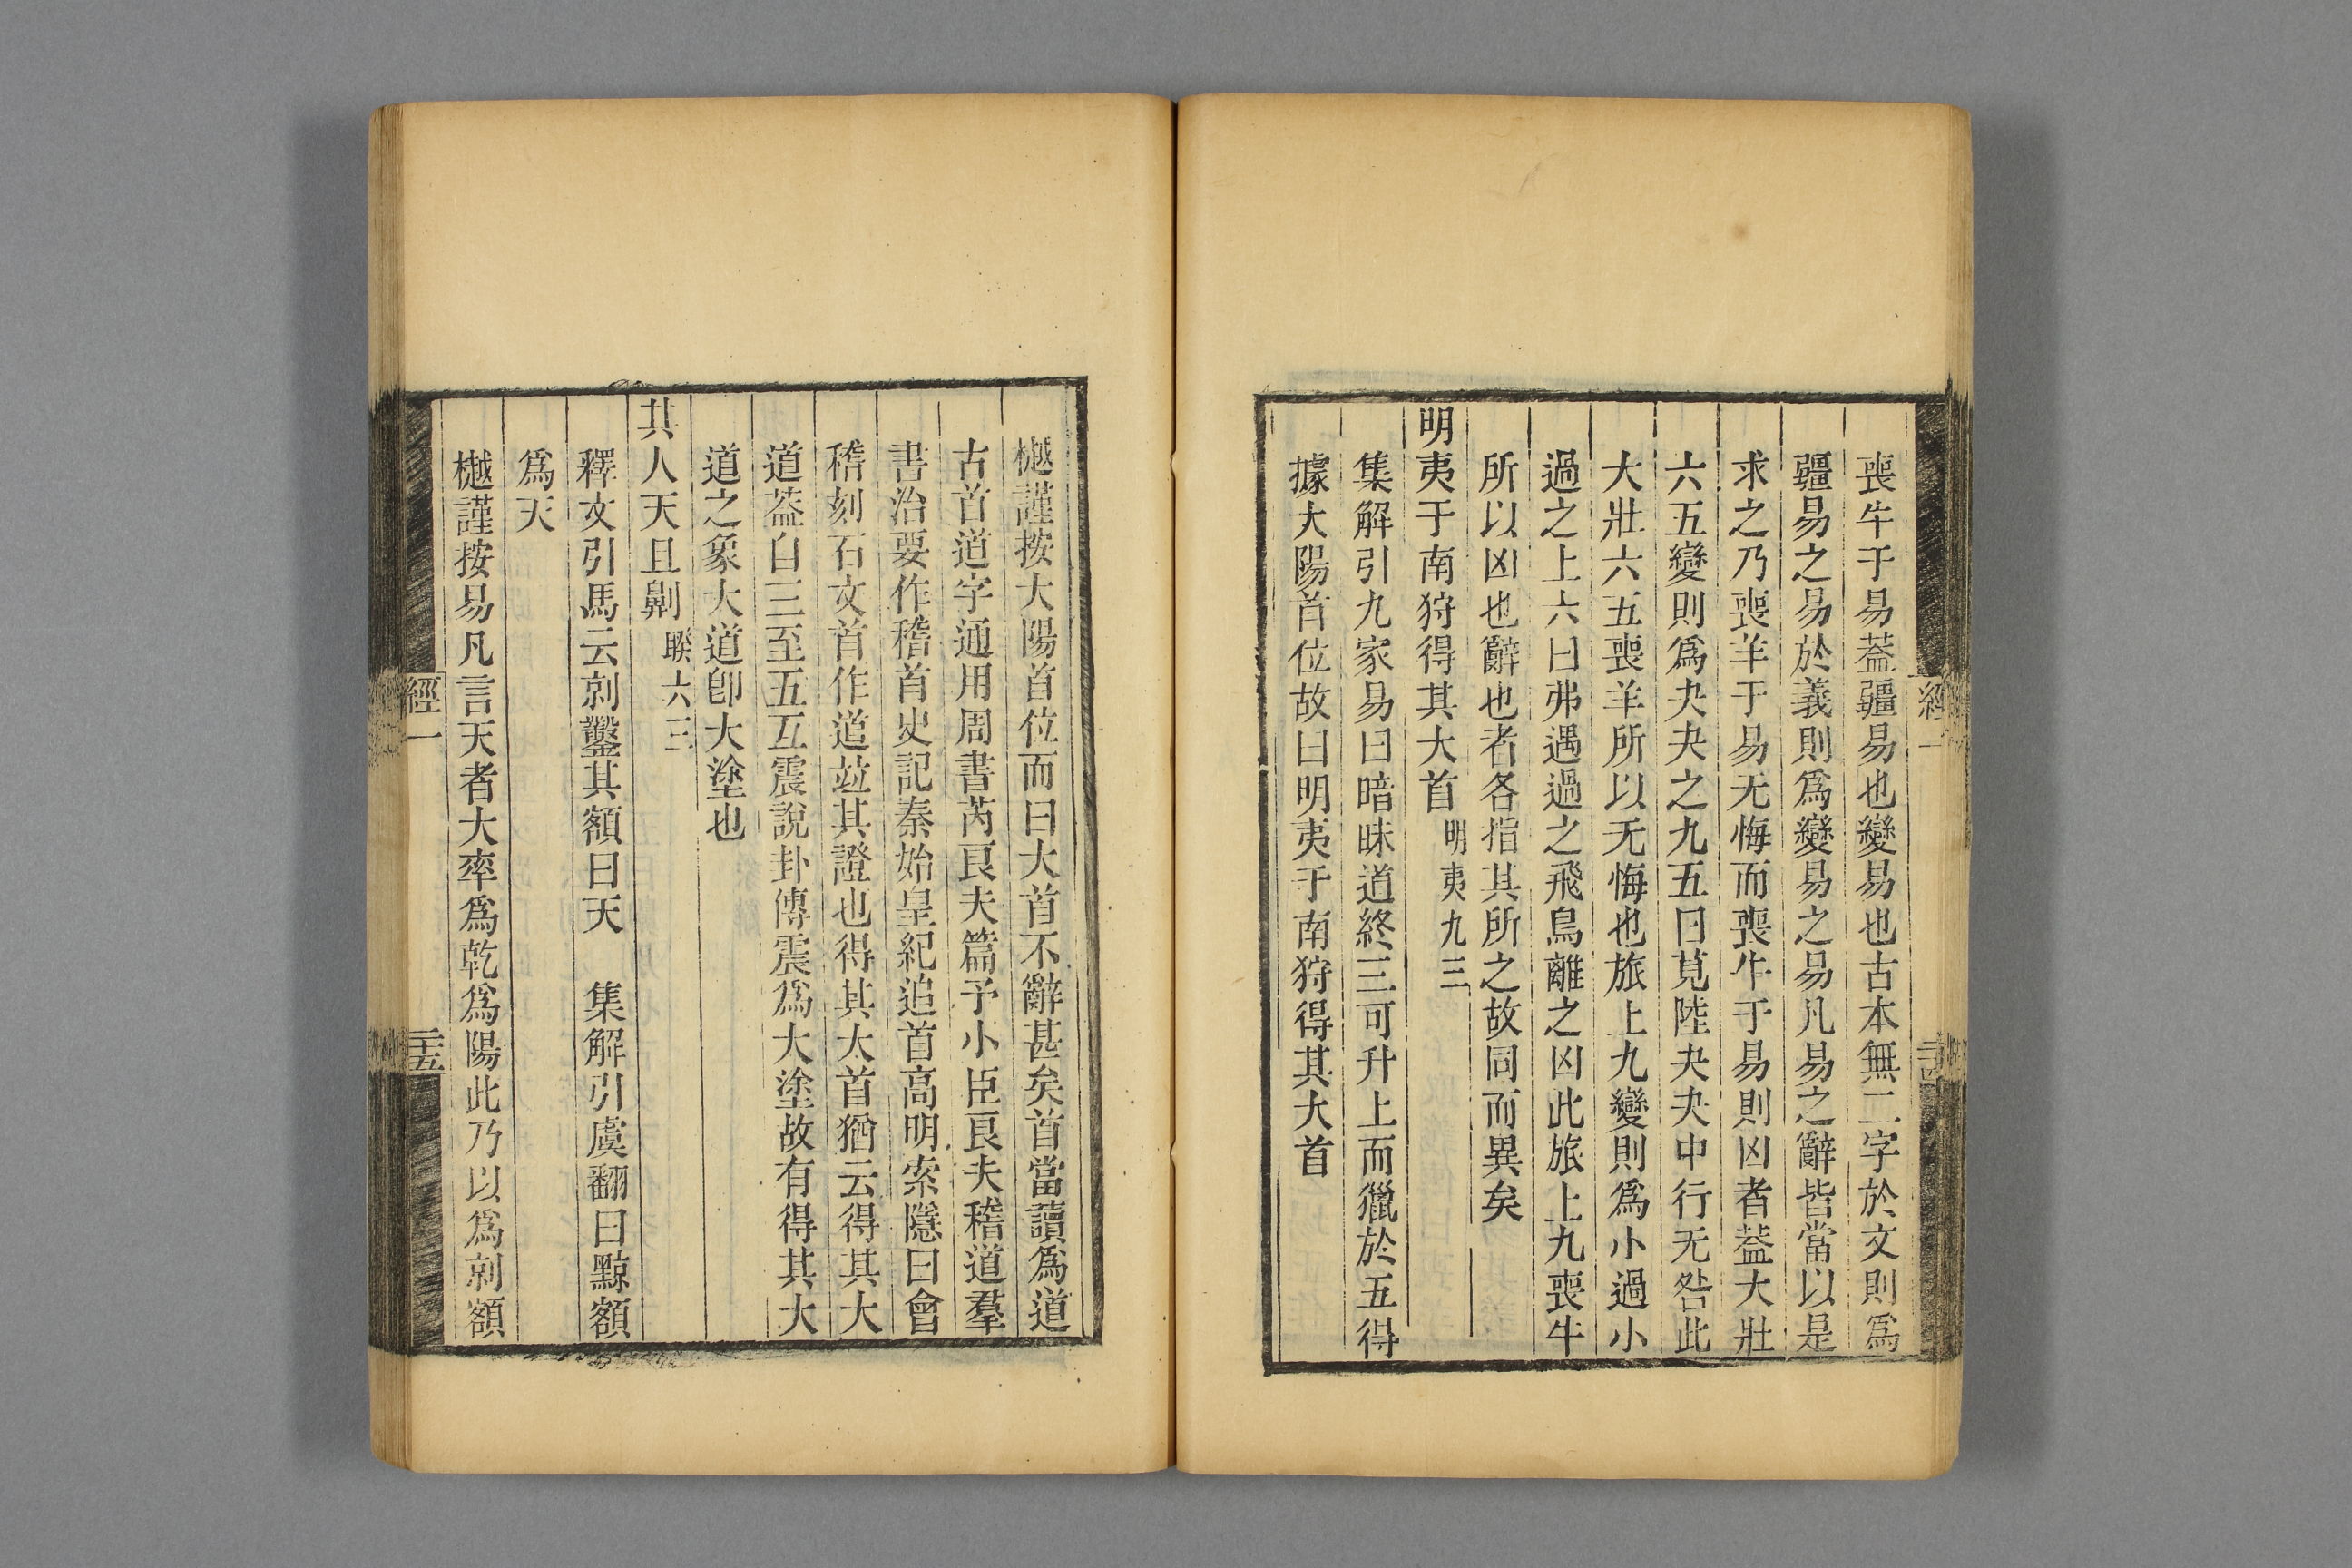 喪牛于易葢疆易也變易也古本無二字於文則爲
疆易之易於義則爲變易之易凡易之辭皆當以是
求之乃喪羊于易无悔而喪牛于易則凶者葢大壯
六五變則爲夬夬之九五曰莧陸夬夬中行无咎此
大壯六五喪羊所以无悔也旅上九變則爲小過小
過之上六曰弗遇過之飛鳥離之凶此旅上九喪牛
所以凶也辭也者各指其所之故同而異矣
明夷于南狩得其大首 明夷九三
集解引九家易曰暗昧道終三可升上而獵於五得
據大陽首位故曰明夷于南狩得其大首
經一
樾謹按大陽首位而曰大首不辭甚矣首當讀爲道
古首道字通用周書芮良夫篇予小臣良夫稽道羣
書治要作稽首史記秦始皇紀追首高明索隱曰會
稽刻石文首作道竝其證也得其大首猶云得其大
道葢自三至五互震說卦傳震爲大塗故有得其大
道之象大道卽大塗也
其人天且劓 睽六三
釋文引馬云剠鑿其額曰天 集解引虞翻曰黥額
爲天
樾謹按易凡言天者大率爲乾爲陽此乃以爲剠額
經一
二十五